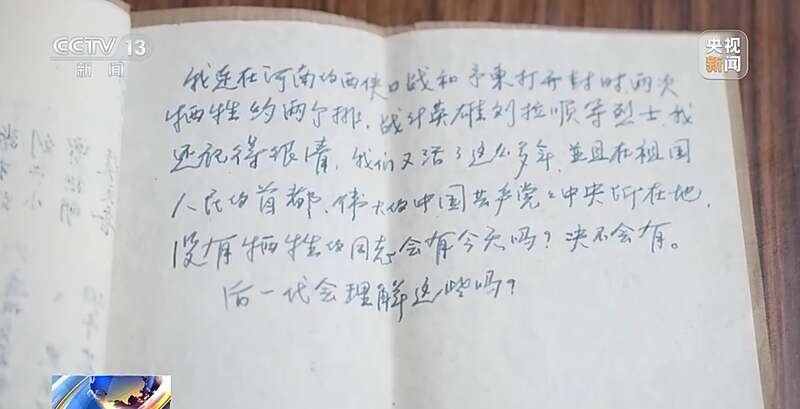 CCTV 13
新闻
央视
新闻
我连在河南的西侠口战和予东打开封时两次
牺牲约两个排，战斗英雄刘拉顺等烈士，我
还记得很清，我们又活了这么多年，並且在祖国
人民的首都、伟大的中国共产党、中央所在地，
没有牺牲的同志会有今天吗？决不会有。
后一代会理解这些吗？